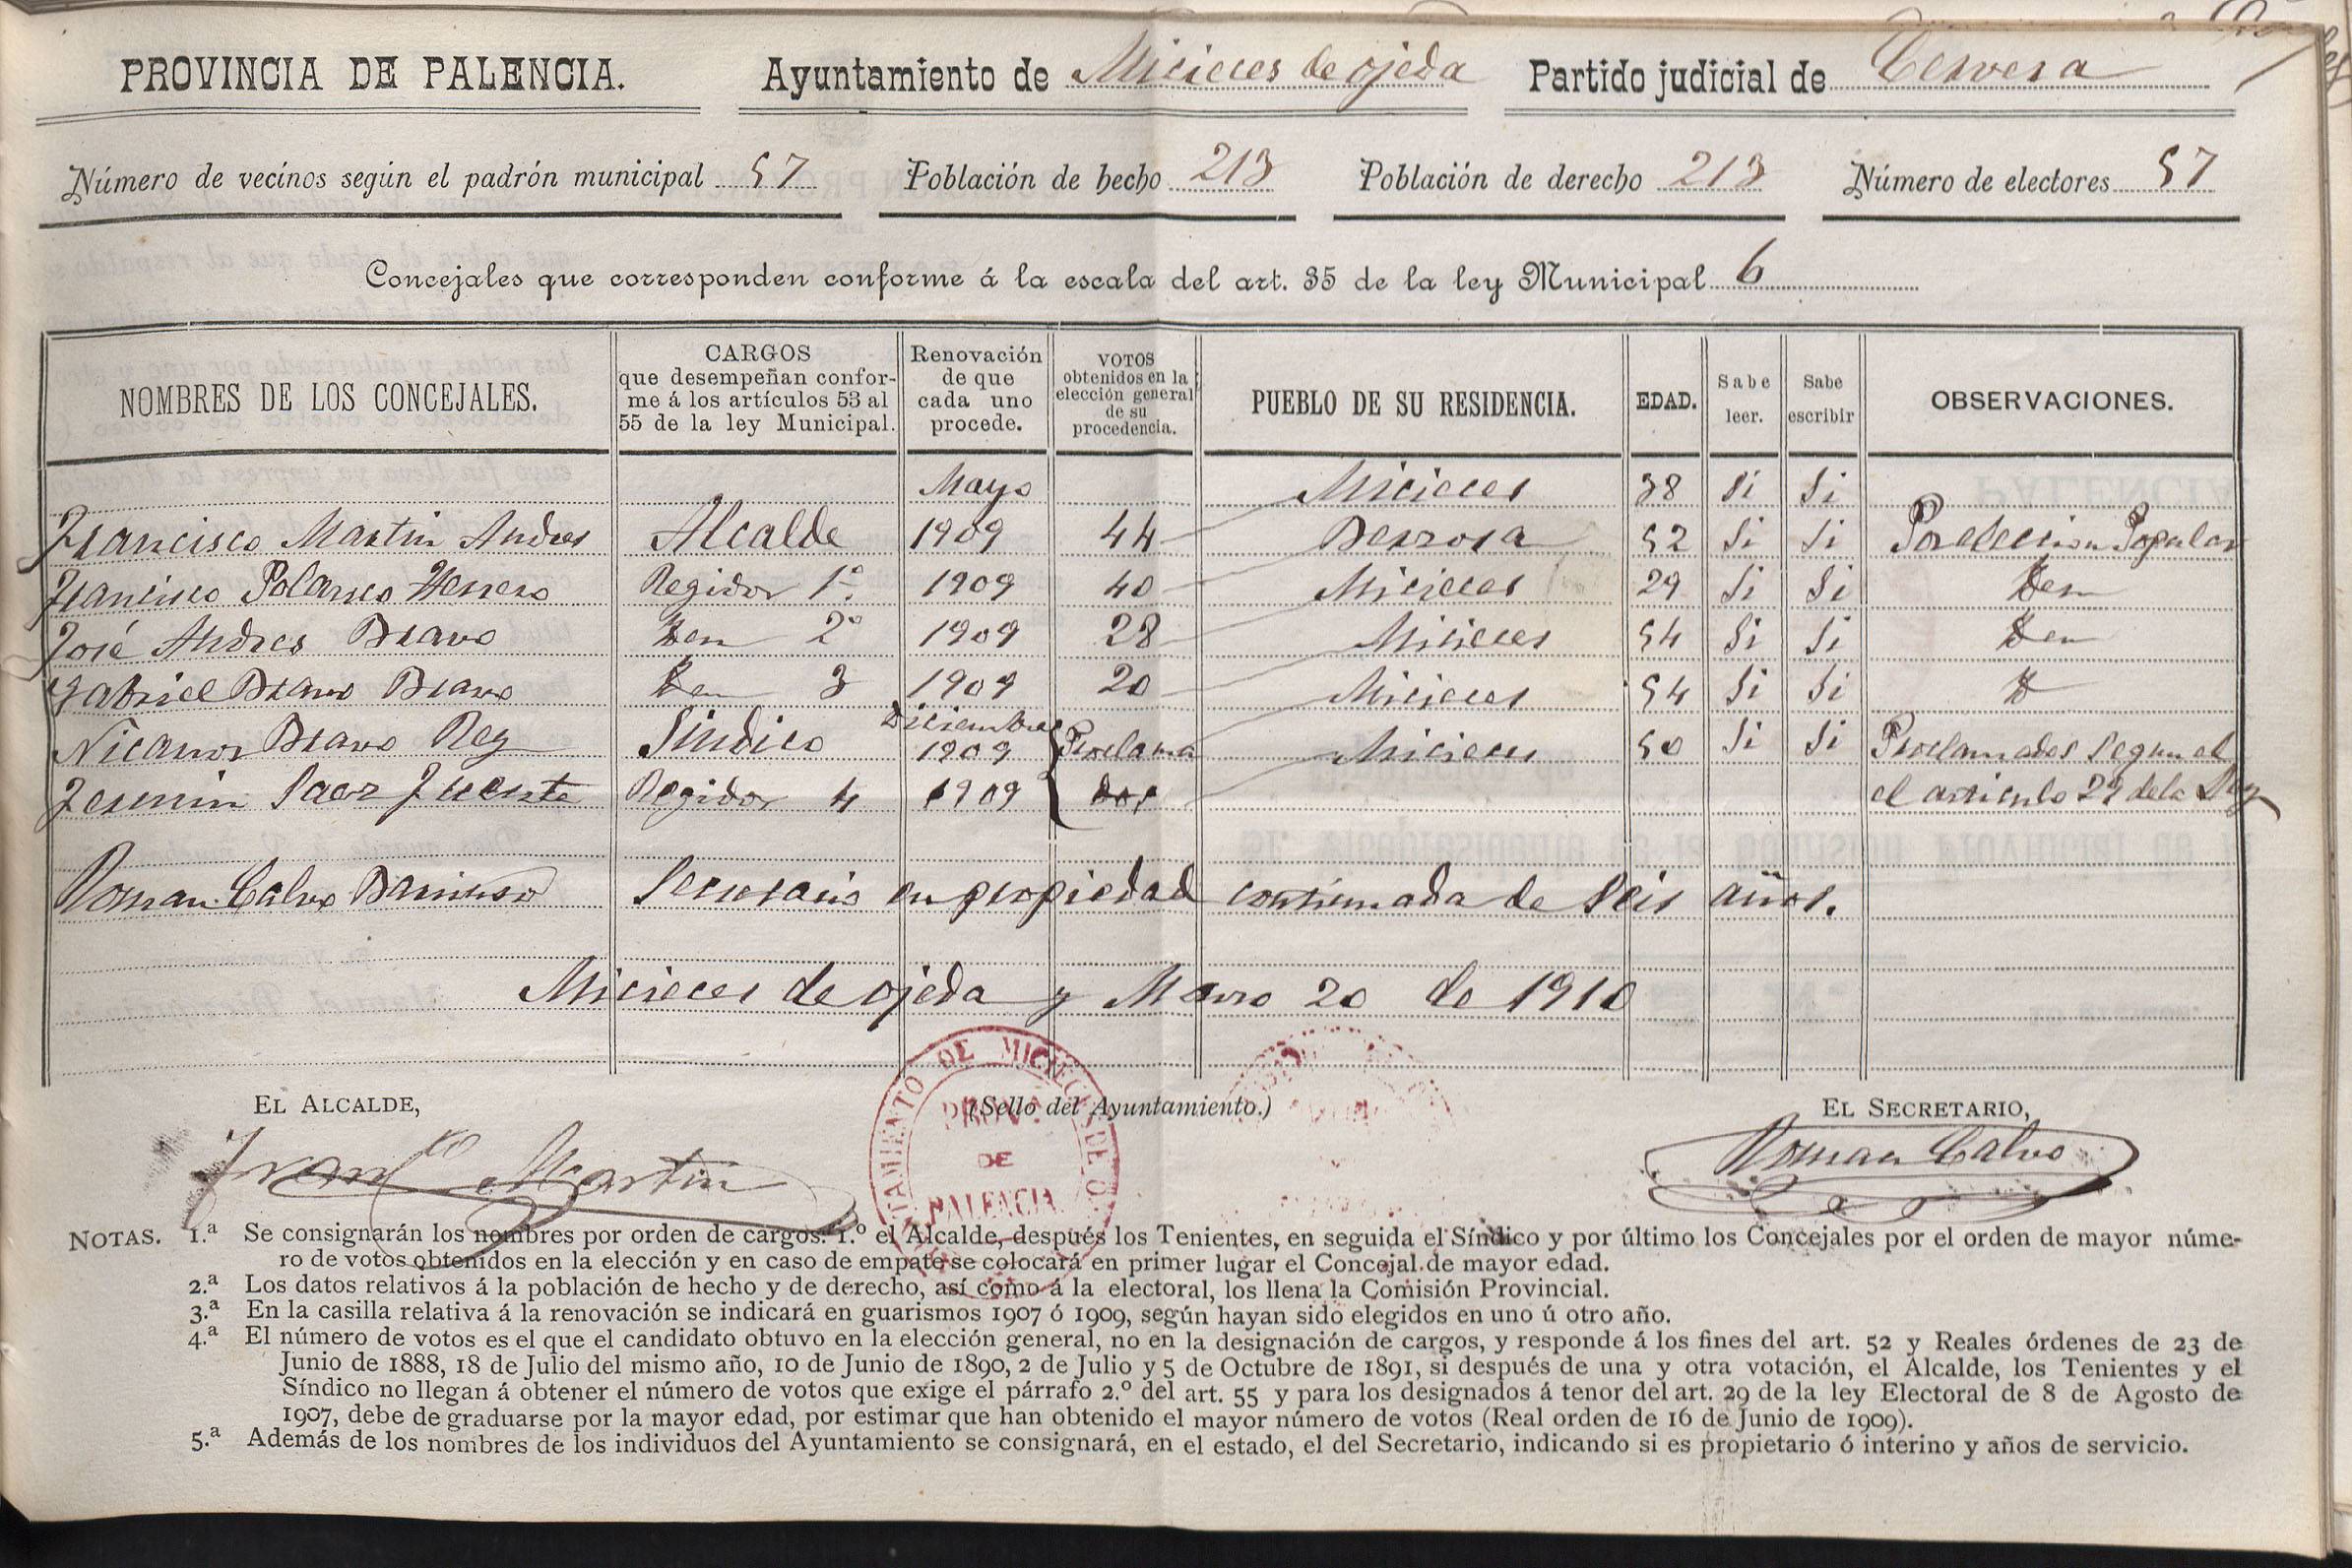 PROVINCIA DE PALENCIA. Ayuntamiento de Micieces de ojeda Partido judicial de Cervera
Número de vecinos según el padrón municipal 57 Población de hecho 213 Población de derecho 213 Número de electores 57
Concejales que corresponden conforme á la escala del art. 35 de la ley Municipal 6
NOMBRES DE LOS CONCEJALES. CARGOS que desempeñan conforme á los artículos 53 al 55 de la ley Municipal. Renovación de que cada uno procede. VOTOS obtenidos en la elección general de su procedencia. PUEBLO DE SU RESIDENCIA. EDAD. Sabe leer. Sabe escribir OBSERVACIONES.
Mayo Micieces 38 Si Si
Francisco Martin Andres Alcalde 1909 44 Berzosa 52 Si Si Por eleccion Popular
Francisco Polanco Herrero Regidor 1º 1909 40 Micieces 29 Si Si Ydem
José Andres Bravo Ydem 2º 1909 28 Micieces 54 Si Si Ydem
Gabriel Bravo Bravo Ydem 3 1909 20 Micieces 54 Si Si Y
Nicanor Bravo Rey Sindico Diciembre 1909 Proclama Micieces 50 Si Si Proclamados Segun el
Fermin Saez Fuente Regidor 4 1909 dos el articulo 29 de la Ley
Roman Calvo Secretario en propiedad de Seis años.
Micieces de ojeda y Marzo 20 de 1910
EL ALCALDE, (Sello del Ayuntamiento.) EL SECRETARIO,
AYUNTAMIENTO DE MICIECES DE O
PROVA
DE
PALENCIA
Franco Martin Roman Calvo
NOTAS. 1.ª Se consignarán los nombres por orden de cargos: 1.º el Alcalde, después los Tenientes, en seguida el Síndico y por último los Concejales por el orden de mayor núme-
ro de votos obtenidos en la elección y en caso de empate se colocará en primer lugar el Concejal de mayor edad.
2.ª Los datos relativos á la población de hecho y de derecho, así como á la electoral, los llena la Comisión Provincial.
3.ª En la casilla relativa á la renovación se indicará en guarismos 1907 ó 1909, según hayan sido elegidos en uno ú otro año.
4.ª El número de votos es el que el candidato obtuvo en la elección general, no en la designación de cargos, y responde á los fines del art. 52 y Reales órdenes de 23 de
Junio de 1888, 18 de Julio del mismo año, 10 de Junio de 1890, 2 de Julio y 5 de Octubre de 1891, si después de una y otra votación, el Alcalde, los Tenientes y el
Síndico no llegan á obtener el número de votos que exige el párrafo 2.º del art. 55 y para los designados á tenor del art. 29 de la ley Electoral de 8 de Agosto de
1907, debe de graduarse por la mayor edad, por estimar que han obtenido el mayor número de votos (Real orden de 16 de Junio de 1909).
5.ª Además de los nombres de los individuos del Ayuntamiento se consignará, en el estado, el del Secretario, indicando si es propietario ó interino y años de servicio.